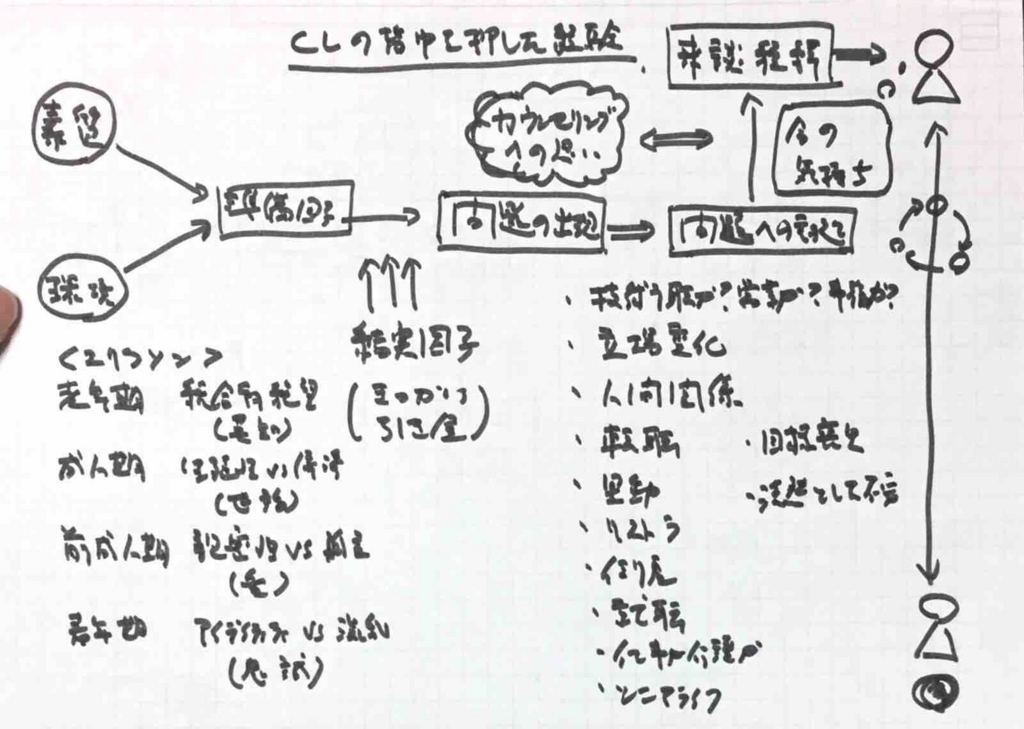 CLの背中を押した経験
来談経緯
素質
カウンセリング
への思い
今の
気持ち
準備因子
問題の出現
問題への対処
環境
結実因子
(きっかけ
引き金)
<エリクソン>
老年期 統合 絶望
(英知)
成人期 生殖性 vs 停滞
(世話)
前成人期 親密性 vs 孤立
(愛)
青年期 アイデンティティ vs 拡散
(忠誠)
・立場変化
・人間関係
・転職
・目標喪失
・異動
・漠然として不安
・リストラ
・役職
・仕事か介護か
・シニアライフ